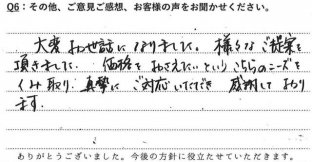 Q6：その他、ご意見ご感想、お客様の声をお聞かせください。
大変お世話になりました。様々なご提案を
頂きました。価格をおさえたいというこちらのニーズを
くみ取り、真摯にご対応いただき感謝しており
ます。
ありがとうございました。今後の方針に役立たせていただきます。